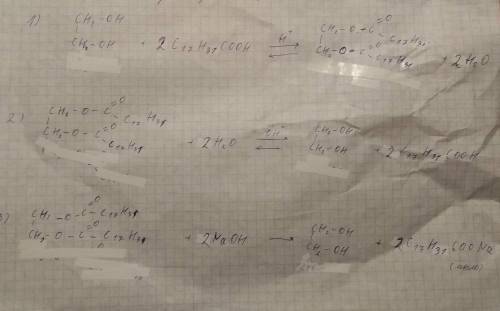 1) CH₂-OH
CH₂-OH + 2 C₁₇H₃₁COOH ⇄ H⁺ CH₂-O+C=O C₁₇H₃₁
CH₂-O+C=O C₁₇H₃₁ + 2H₂O
2) CH₂-O-C=O C₁₇H₃₁
CH₂-O-C=O C₁₇H₃₁ + 2H₂O ⇄ CH₂-OH
CH₂-OH + 2C₁₇H₃₁COOH
3) CH₂-O-C=O-C₁₇H₃₁
CH₂-O-C=O-C₁₇H₃₁ + 2NaOH → CH₂-OH
CH₂-OH + 2C₁₇H₃₁COONa
(мыло)